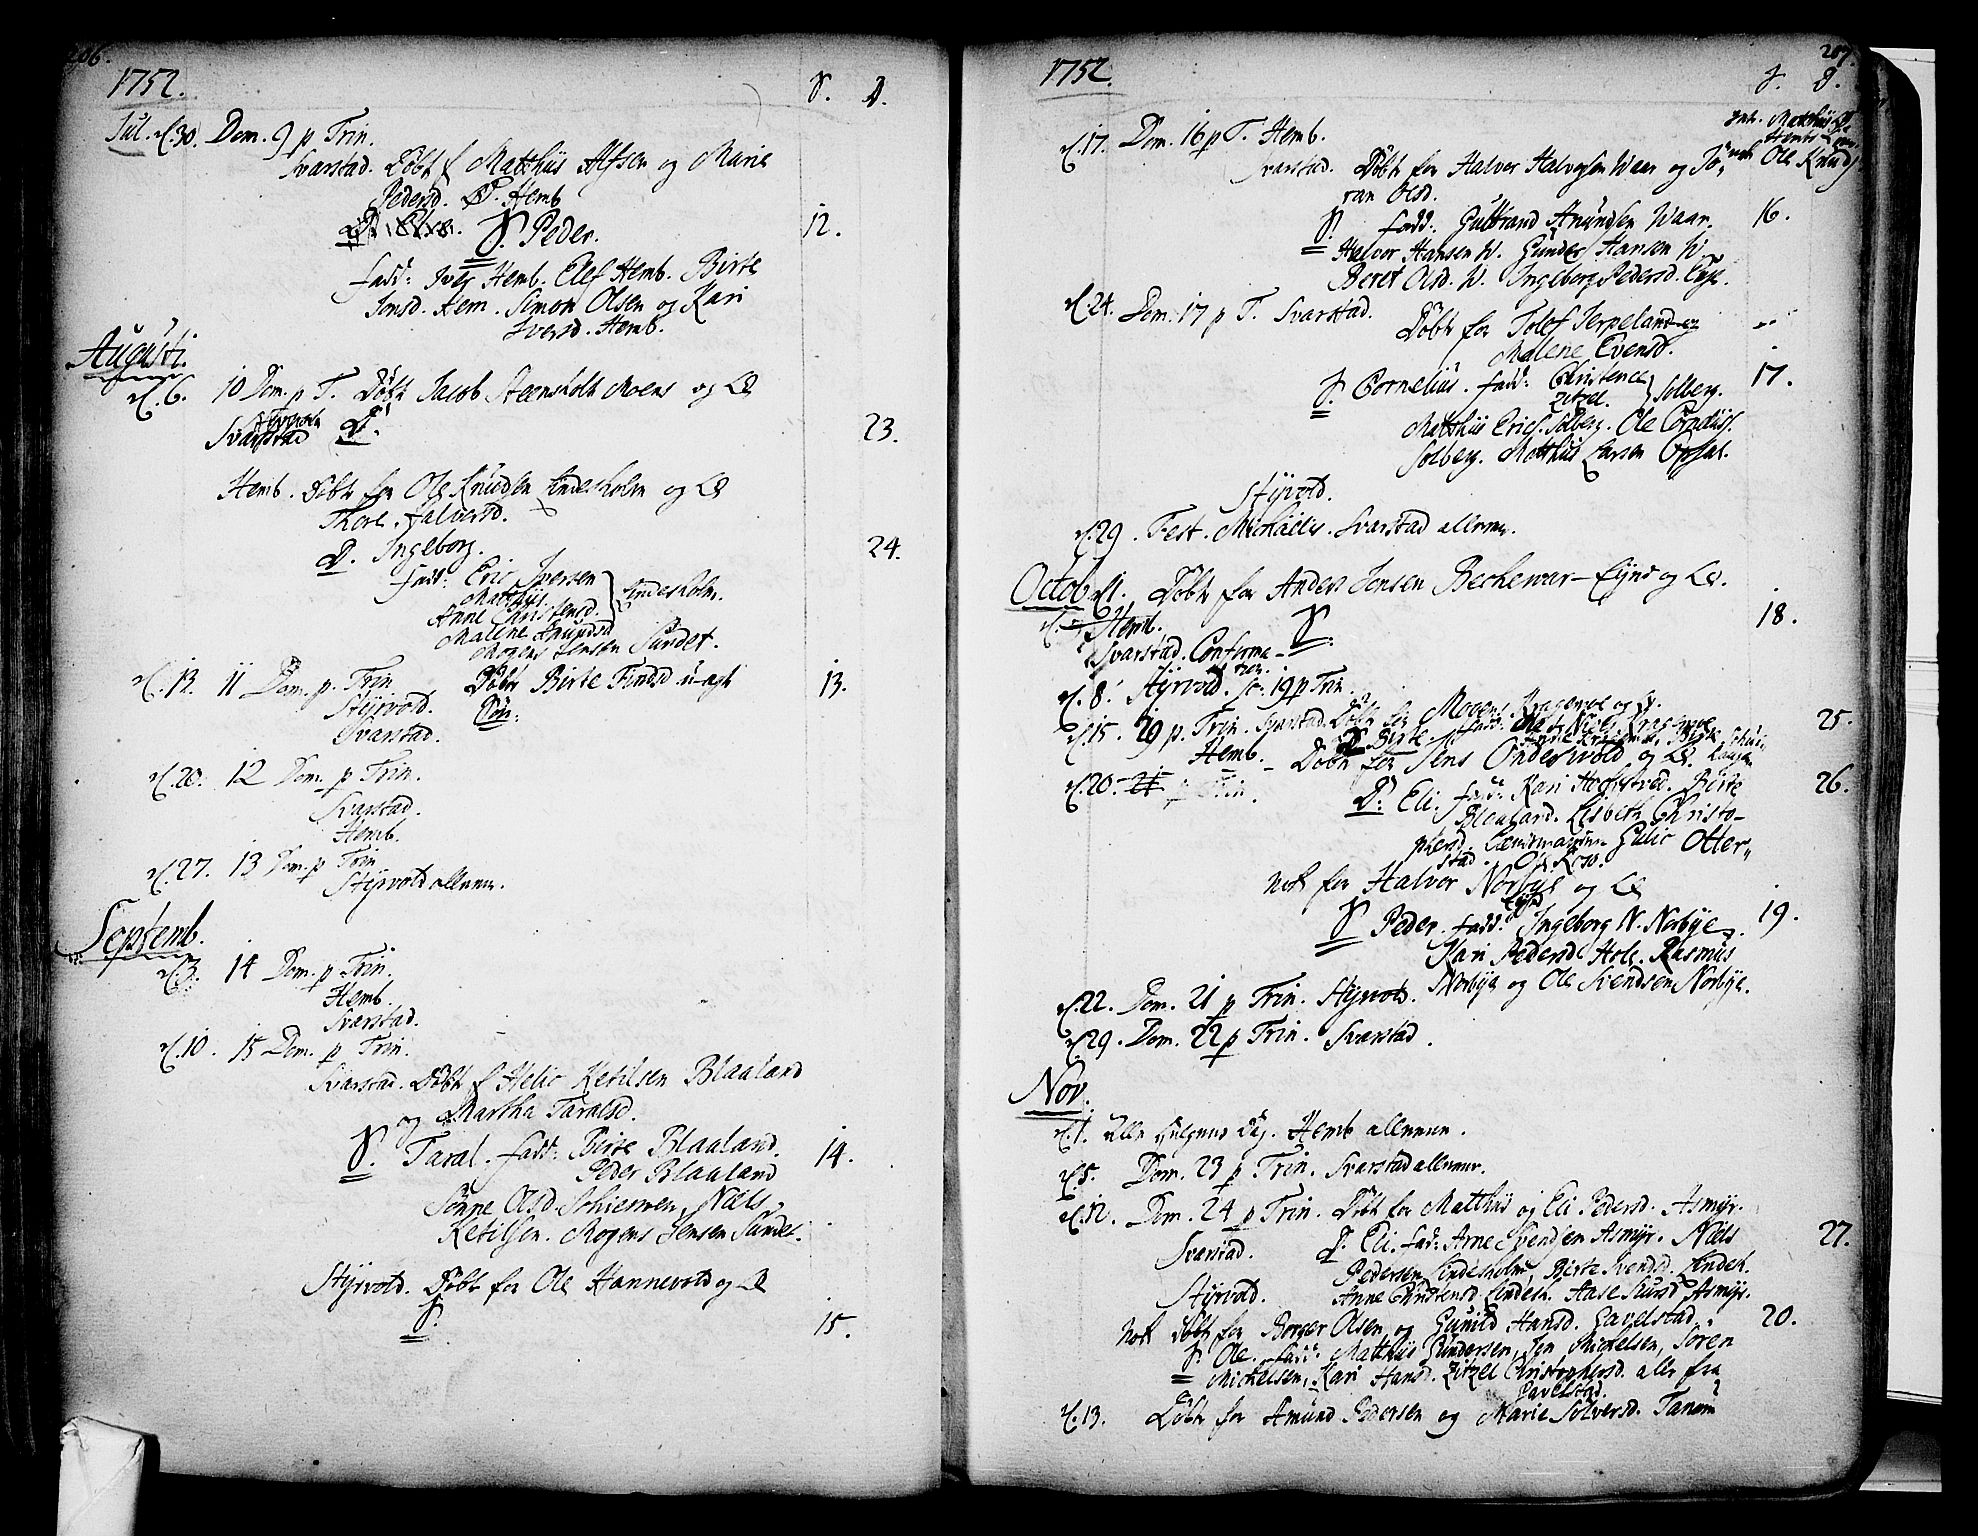 206.
1752.
S. D.
Jul. d. 30. Dom. 9 p Trin.
Svarstad. Døbt f Matthiis Alfsen og Marie
Pedersd. Hemb
S. Peder. 12.
fadd: Iver Hemb. Elef Hemb. Birte
Jensd. Hem. Simon Olsen og Kari
Iversd. Hemb.
Augusti.
d. 6. 10 Dom. p T. Døbt Jacob Steensholt Moens og
Styrvold
Svarstad D. 23.
Hemb. Døbt for Ole Knudsen Lindesholm og
Thore Halversd.
D. Ingeborg. 24.
fadd: Eric Iversen
Matthiis
Anne Christensd. Lindesholm.
Malene Amundsd
Mogens Jensen Sundet.
d. 13. 11 Dom. p. Trin Døbt Birte Findsd u-ægt 13.
Styrvold. Søn:
Svarstad.
d. 20. 12 Dom. p Trin.
Svarstad.
Hemb.
d. 27. 13 Dom. p Trin
Styrvold allene.
Septemb.
d. 3. 14 Dom. p Trin.
Hemb.
Svarstad.
d. 10. 15 Dom. p Trin.
Svarstad. Døbt f Helic Ketilsen Blaaland
og Martha Taralsd.
S. Taral. fadd: Birte Blaaland. 14.
Peder Blaaland
Sønne Olsd. Schiermen, Næls
Ketilsen. Mogens Jensen Sundet.
Styrvold. Døbt for Ole Hannevold og
S. 15.
207.
1752.
S. D.
Matthiis
Hemb
Ole Knuds
d. 17. Dom. 16 p T. Hemb.
Svarstad. Døbt for Halver Halversen Waar og Jø-
ran Olsd.
S. fadd: Guttrand Amundsen Waar. 16.
Halvor Hansen W. Gunder Hansen W
Beret Olsd. W. Ingeborg Pedersd. Eye.
d. 24. Dom. 17 p T. Svarstad. Døbt for Tolef Serpeland og
Malene Evensd.
S. Cornelius. fadd: Christence 17.
Zitzel. Solberg.
Matthiis Erics. Solberg. Ole Corneliss.
Solberg. Matthiis Larsen Opsal.
Styrvold.
d. 29. Fest. Michaëlis. Svarstad allene.
Octob d. 1. Døbt for Anders Jensen Beckewar-Eynd og
Hemb. S. 18.
Svarstad. Confirma-
tion
d. 8. Styrvold. 19 p Trin.
d. 15. 20 p. Trin. Svarstad. Døbt for Mogens Kragerøe og
D. Birte. fadd: Niels Kragerøe 25.
Hemb. - Døbt for Jens Onderwold og
d. 20. 21 p Trin. D: Eli. fadd: Kari Hoffstved. Birte 26.
Blaaland. Lisbeth Christo-
phersd. Gulic Otter-
stad. Ole Row.
Nok for Halvor Norbye og
S Peder. fadd: Ingeborg N. Norbye 19.
Kari Pedersd Hole. Rasmus
Norbye og Ole Svendsen Norbye.
d. 22. Dom. 21 p Trin. Styrvold.
d. 29. Dom. 22 p Trin. Svarstad.
Nov.
d. 1. Alle Helgens Dag. Hemb allene.
d. 5. Dom. 23 p Trin. Svarstad allene.
d. 12. Dom. 24 p Trin. Døbt for Matthiis og Eli Pedersd. Asmyr.
Svarstad. D. Eli. fad: Arne Svendsen Asmyr. Næls 27.
Pedersen Lindesholm Birte Svendsd. Lindesh.
Styrvold. Anne Christensd. Lindesh. Aase Asmyr.
Nok døbt for Borger Olsen og Gunild Hansd. Gavelstad. 20.
S. Ole. fadd: Matthiis Gundersen, Jon Mickelsen, Søren
Mickelsen, Kari Hansd. Zitzel Christophersd. alle fra
Gavelstad.
d. 13. Døbt for Amund Pedersen og Marie Solversd. Tanem